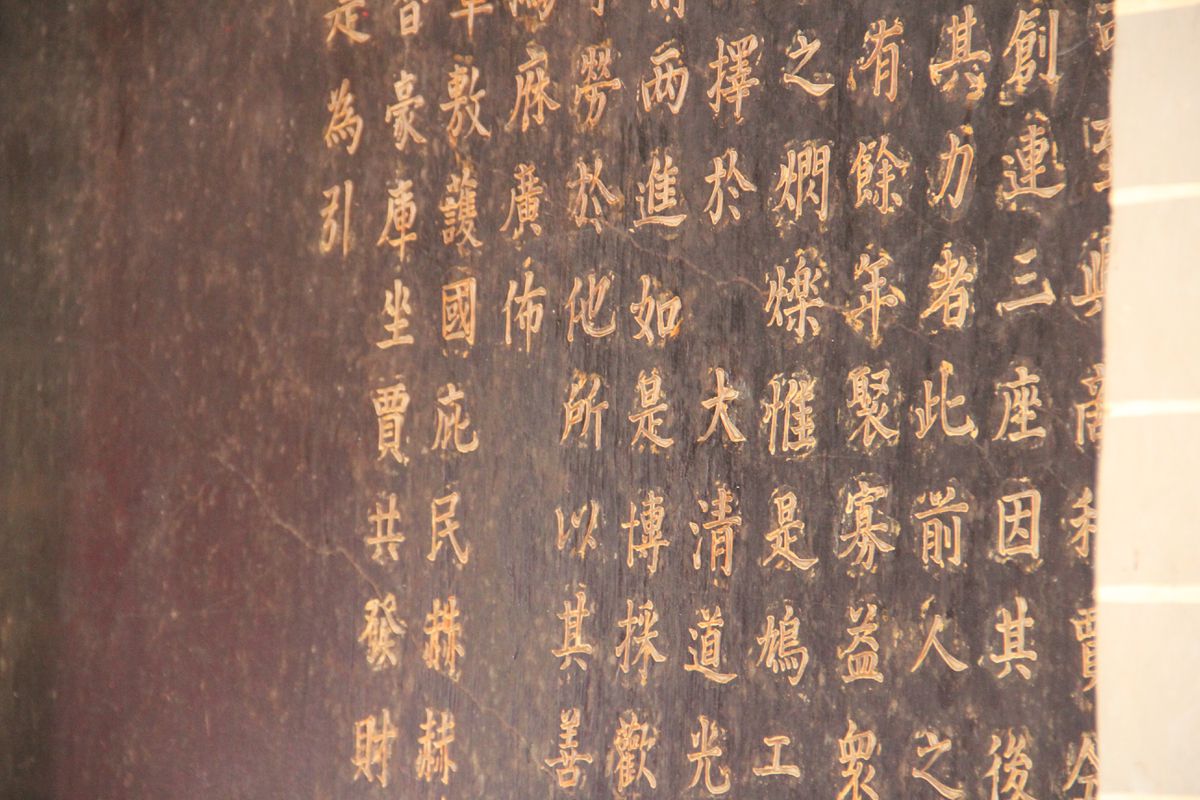 商利賈今
創連三座因其後
其力者此前人之
有餘年聚寡益衆
之燜爍惟是鳩工
擇於大清道光
两進如是博採歡
勞於他所以其善
庥廣佈
敷護國庇民赫赫
豪庫坐賈共發財
是為引